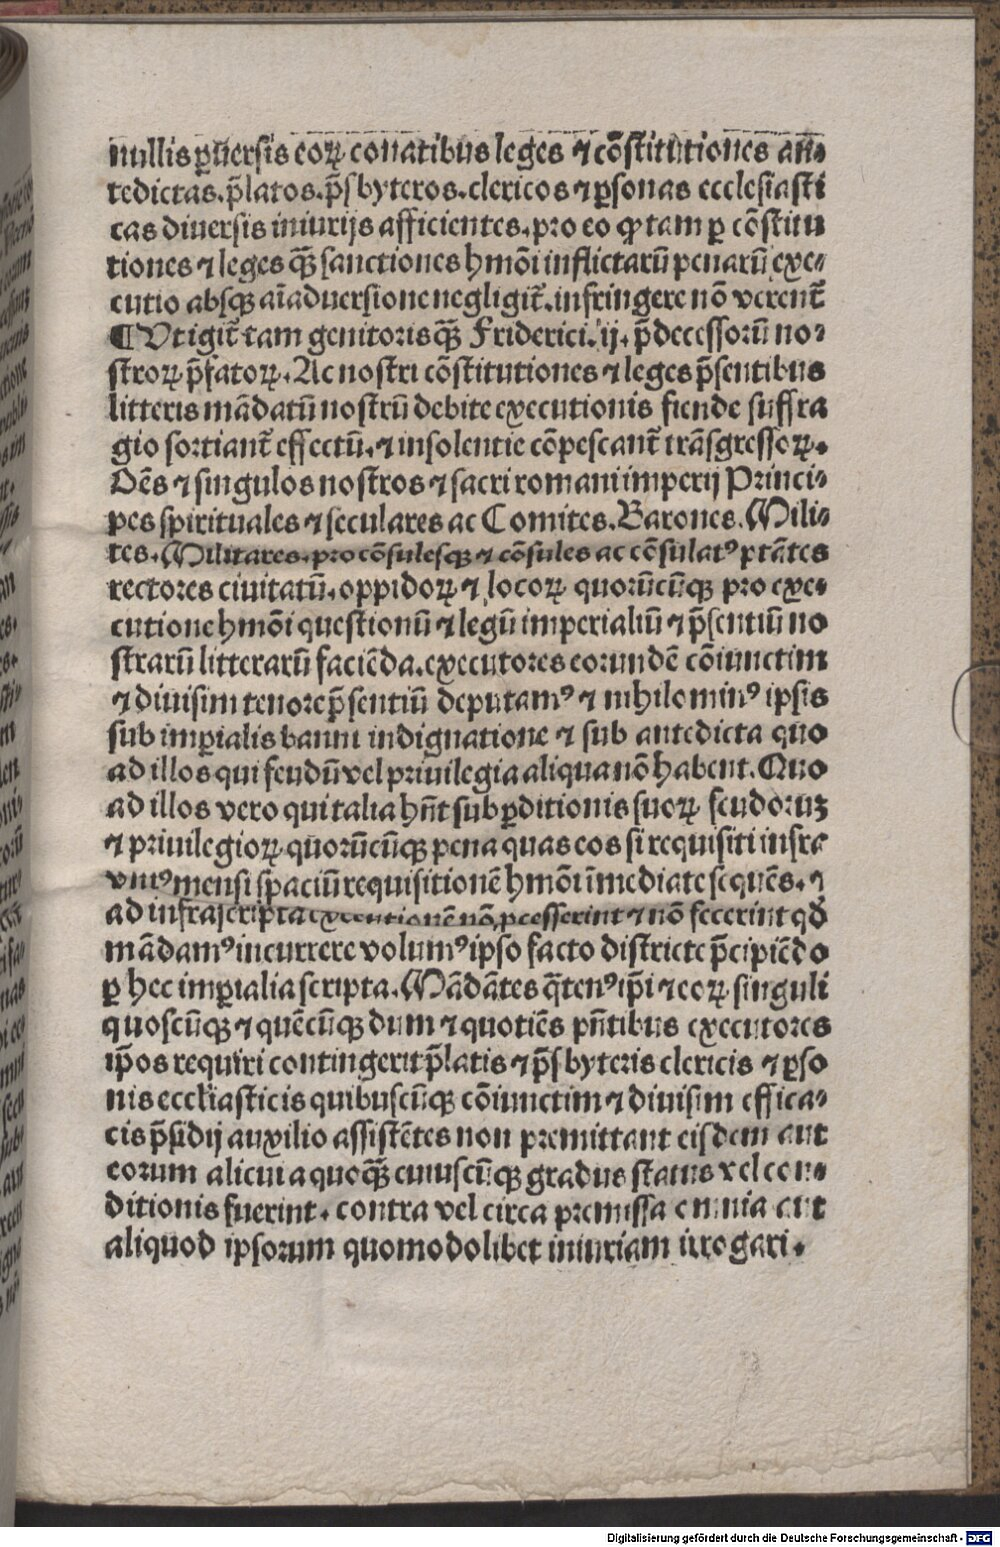 nullis ꝑuersis eoꝝ conatibus leges ⁊ cōstitutiones an⸗
tedictas. p̄latos. p̄sbyteros. clericos ⁊ ꝑsonas ecclesiasti
cas diuersis iniurijs afficientes. pro eo ꝙ tam ꝑ cōstitu
tiones ⁊ leges qȝ̄ sanctiones hmōi inflictarū penarū exe⸗
cutio absqȝ aīaduersione negligit᷑. infringere nō verent᷑
¶ Vt igit᷑ tam genitoris qȝ̄ Friderici. ij. p̄decessorū no⸗
stroꝝ p̄fatoꝝ. Ac nostri cōstitutiones ⁊ leges p̄sentibus
litteris mādatū nostrū debite executionis fiende suffra
gio sortiant᷑ effectū. ⁊ insolentie cōpescant᷑ trāsgressoꝝ.
Oēs ⁊ singulos nostros ⁊ sacri romani imperij Princi⸗
pes spirituales ⁊ seculares ac Comites. Barones. Mili⸗
tes. Militares. pro cōsulesqȝ ⁊ cōsules ac cōsulatꝰ ꝑtātes
rectores ciuitatū. oppidoꝝ ⁊ locoꝝ quorūcūqȝ pro exe⸗
cutione hmōi questionū ⁊ legū imperialiū ⁊ p̄sentiū no
strarū litterarū faciēda. executores eorundē cōiunctim
⁊ diuisim tenore p̄sentiū deputamꝰ ⁊ nihilominꝰ ipsis
sub imꝑialis banni indignatione ⁊ sub antedicta quo
ad illos qui feudū vel priuilegia aliqua nō habent. Quo
ad illos vero qui talia hn̄t sub ꝑditionis suoꝝ feudoruȝ
⁊ priuilegioꝝ quorūcūqȝ pena quas eos si requisiti infra
vniꝰ mensi spaciū requisitionē hmōi īmediate sequēs. ⁊
ad infrascripta executionē nō ꝓcesserint ⁊ nō fecerint qd̄
mādamꝰ incurrere volumꝰ ipso facto districte p̄cipiēdo
ꝑ hec imꝑialia scripta. Mādātes q̄tenꝰ ip̄i ⁊ eoꝝ singuli
quoscūqȝ ⁊ quēcūqȝ dum ⁊ quotiēs pn̄tibus executores
ip̄os requiri contingerit p̄latis ⁊ p̄sbyteris clericis ⁊ ꝑso
nis eccliasticis quibuscūqȝ cōiunctim ⁊ diuisim effica⸗
cis p̄sidij auxilio assistētes non premittant eisdem aut
eorum alicui a quoqȝ̄ cuiuscūqȝ gradus status vel con⸗
ditionis fuerint. contra vel circa premissa omnia aut
aliquod ipsorum quomodolibet iniuriam irrogari.
Digitalisierung gefördert durch die Deutsche Forschungsgemeinschaft - DFG